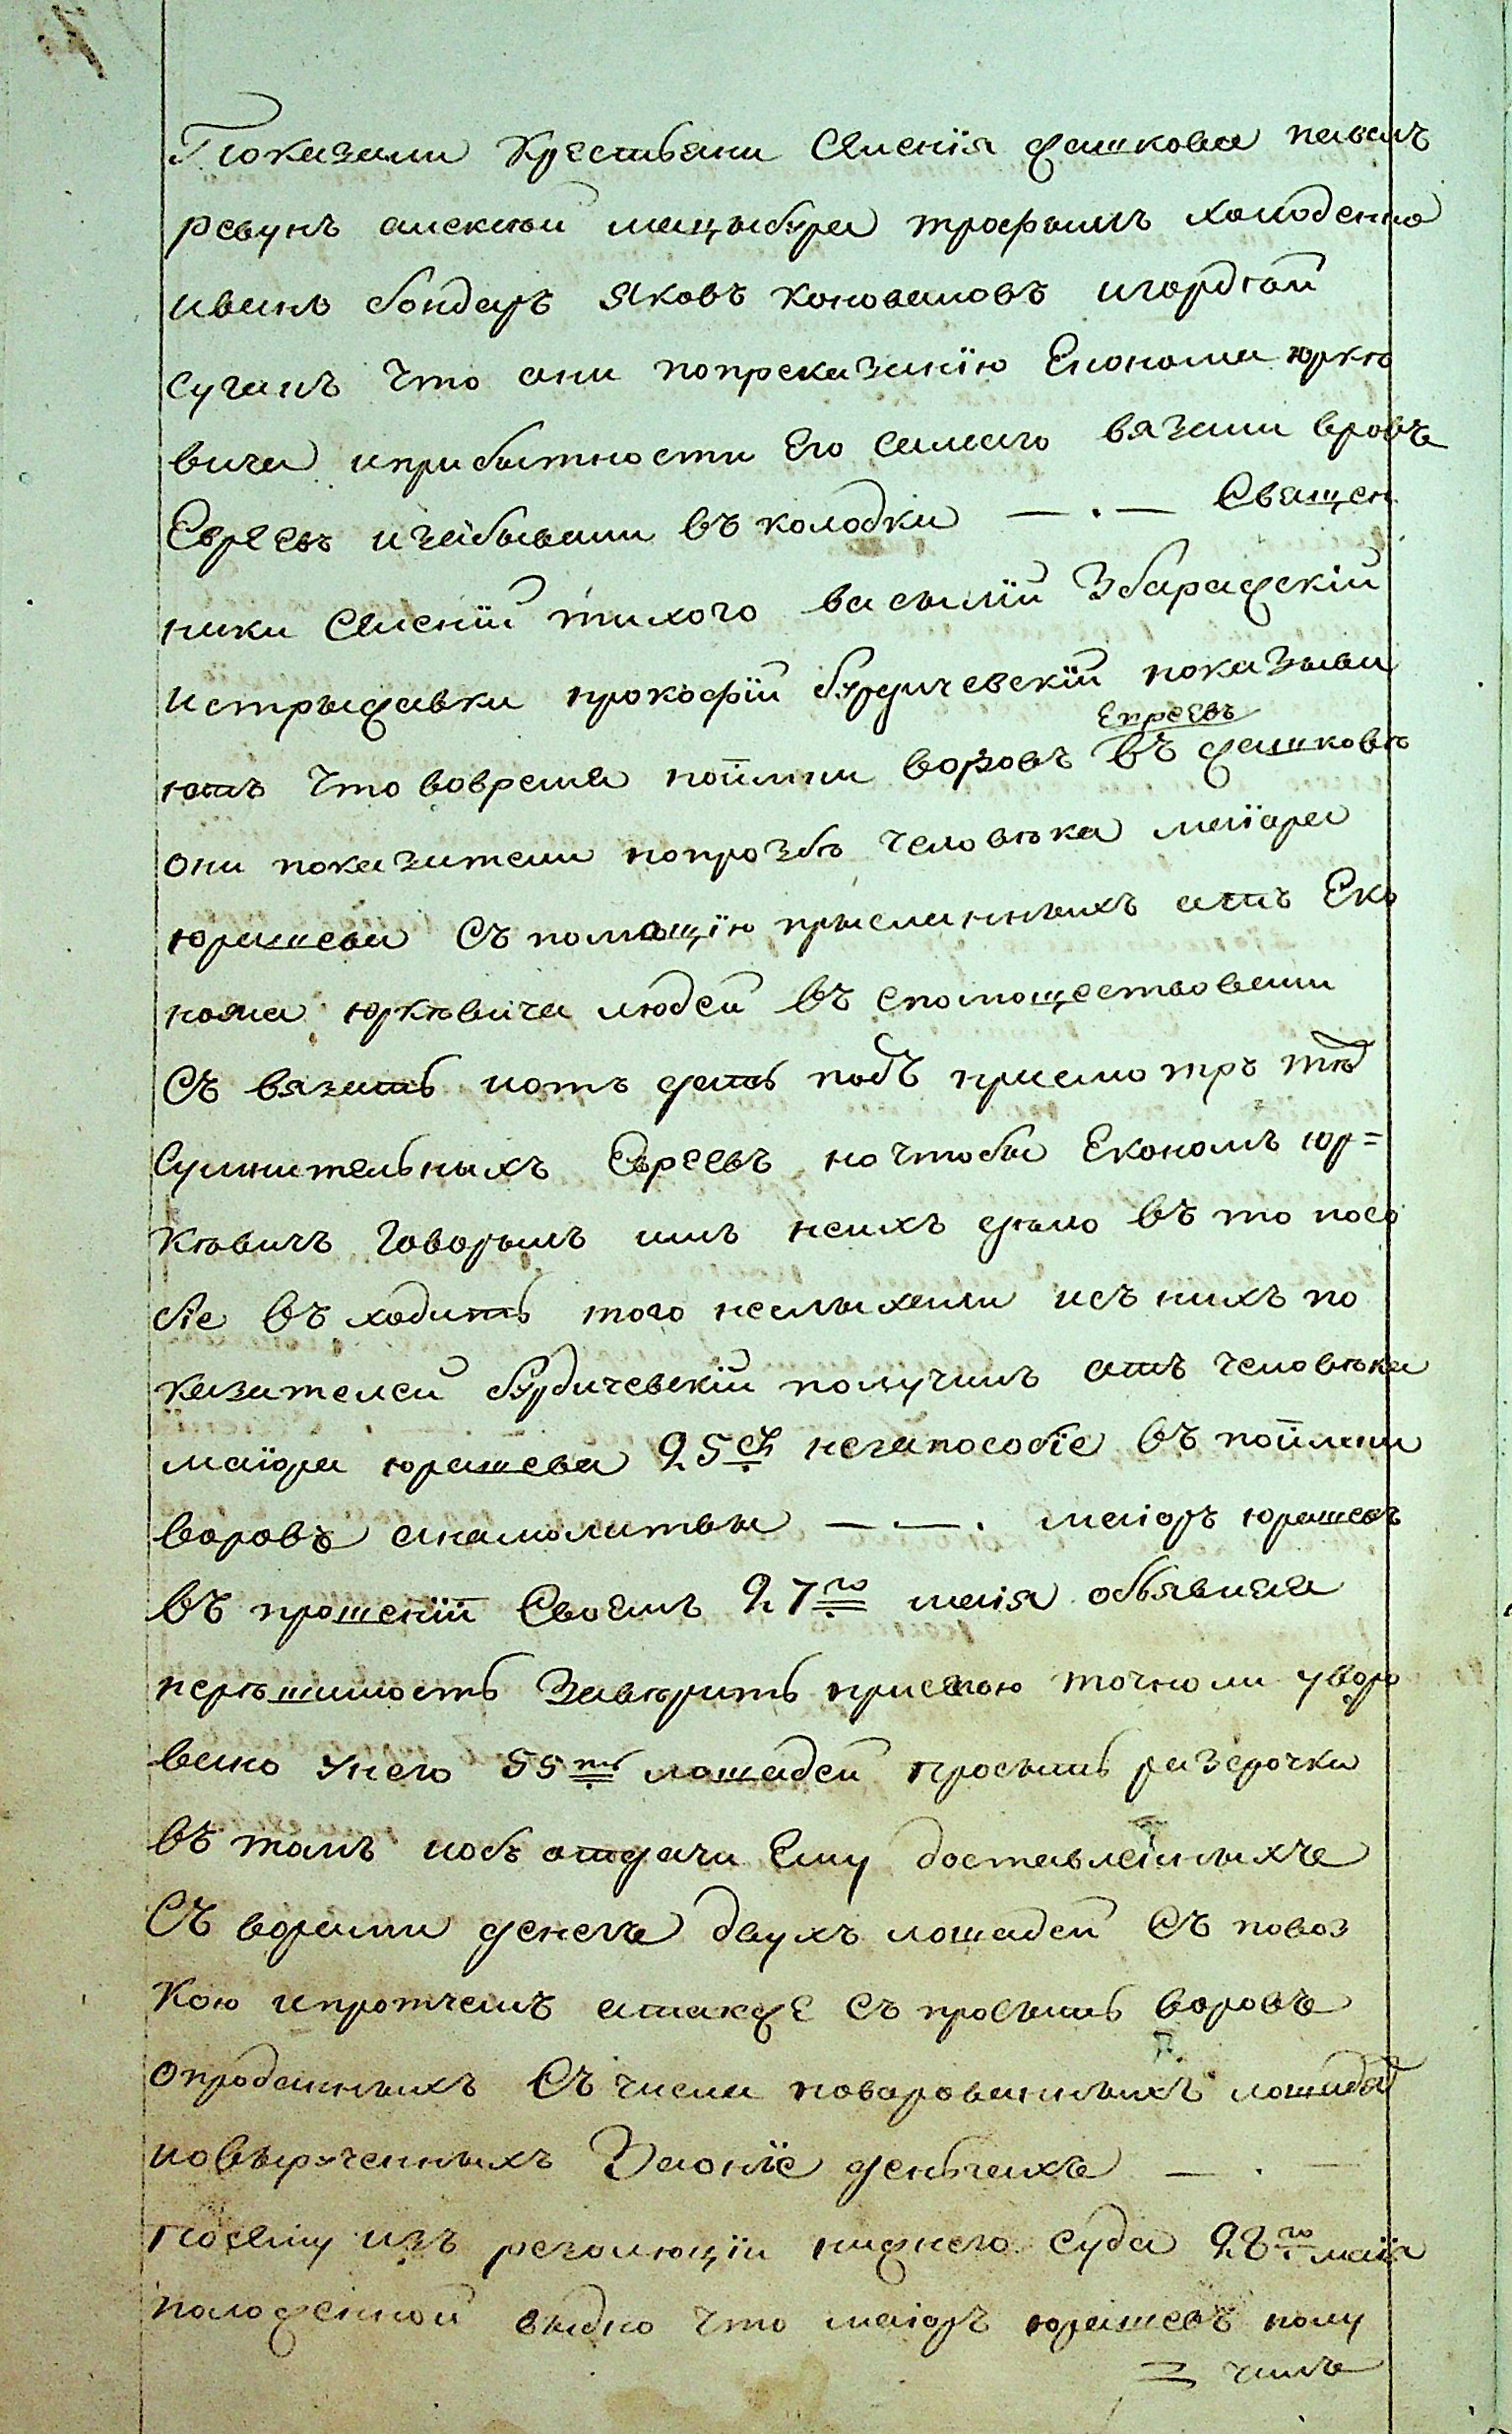 Показали Крестьяни Селенія Жашкова павелъ
ревунъ алексѣй мацыбура трофымъ холоденко
иванъ бондаръ Яковъ Коноваловъ игордѣй
Суганъ что они попреказанію Економа юркѣ
вича иприбытности Его самаго вязали вровъ
Евреевъ изабывали въ колодки — . — Священ
ники Селеній тихого василій Збаражскій
истрыжавки прокофій бурдичевскій показыва
ютъ что вовремя поимки воровъ Евреевъ въ Жашковѣ
они показители попрозбѣ человѣка маіора
юрашева Съ помощію прысланныхъ отъ Еко
нома юркѣвича людей въспомоществовали
Съ вязать иотъ дать подъ присмотръ тѣхъ
Сумнительныхъ Евреевъ но чтобы Економъ юр=
кѣвичъ Говорылъ имъ неихъ дѣло въ то посо
біе въ ходить того неслыхали исъ нихъ по
казителей бурдичевскій получилъ отъ человѣка
маіора юрашева 25 незапособіе въ поимки
воровъ анамолитвы — — . маіоръ юрашевъ
въ прошеній Своемъ 27го маія объявляя
нерѣшимость Завѣрить присягою точноли уворо
вано унего 55ть лошадей просытъ разсрочки
въ томъ иобъ отдачи Ему доставленныхъ
Съ ворами денегъ двухъ лошадей Съ повоз
кою ипротчемъ атакже Съ просыть воровъ
опроданныхъ Съ числа поворованныхъ лошадей
иовырученныхъ Заоніе деньгахъ — . —
Посему изъ резолюціи нижнего Суда 28го маія
положенной видно что маіоръ юрашевъ полу
чилъ